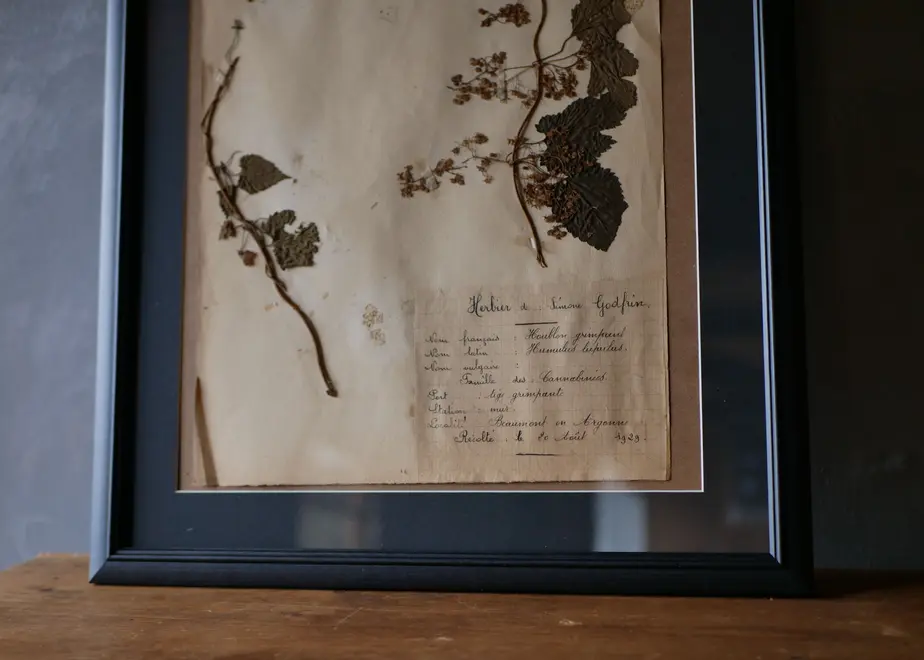 Herbier de : Simone Godfrin.
Nom français : Houblon grimpant
Nom latin : Humulus lupulus.
Nom vulgaire :
Famille des : Cannabinées.
Port : tige grimpante
Station : mur.
Localité Beaumont en Argonne
Récolté : le 20 Août 1929.